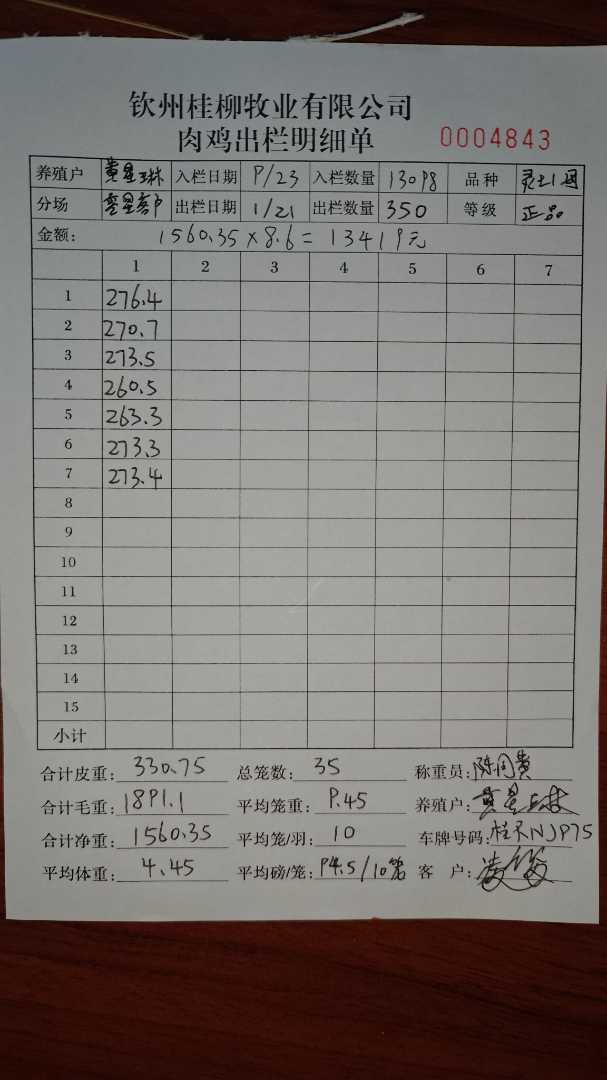 钦州桂柳牧业有限公司
肉鸡出栏明细单 0004843
养殖户 黄星林 入栏日期 9/23 入栏数量 13098 品种 灵土1号
分场 出栏日期 1/21 出栏数量 350 等级 正品
金额: 1560.35×8.6=13419元
1 2 3 4 5 6 7
1 276.4
2 270.7
3 273.5
4 260.5
5 263.3
6 273.3
7 273.4
8
9
10
11
12
13
14
15
小计
合计皮重: 330.75 总笼数: 35 称重员:
合计毛重: 1891.1 平均笼重: 9.45 养殖户:
合计净重: 1560.35 平均笼/羽: 10 车牌号码:
平均体重: 4.45 平均磅/笼: 94.5/10笼 客户: